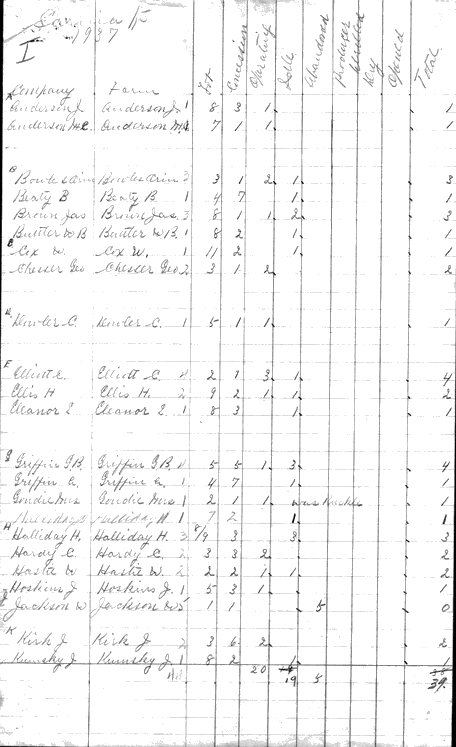 1937
I
Company Farm Lot Concession Operating Idle Abandoned Producer Drilled Dry Opened Total
A
Anderson J Anderson J. 1 8 3 1. 1
Anderson Mc Anderson Mc 7 1 1. 1
B
Bowles Orin Bowles Orin 3 3 1 2. 1. 3
Beaty B Beaty B 1 4 7 1. 1
Brown Jas Brown Jas. 3 8 1 1. 2. 3
Buttler W B Buttler W B. 1 8 2 1. 1
C
Cox W. Cox W. 1 11 2 1. 1
Chesser Geo Chesser Geo 2 3 1 2. 2
Kowler C. Kowler C. 1 5 1 1. 1
E
Elliott C. Elliott C. 4 2 7 3. 1. 4
Ellis H Ellis H. 2 9 2 1. 1. 2
Eleanor E Eleanor E. 1 8 3 1. 1
G
Griffin G B. Griffin G B. 4 5 5 1. 3. 4
Griffin A. Griffin A. 1 4 7 1. 1
Goudie Mrs Goudie Mrs. 1 2 1 1. was 1
Halliday H Halliday H 1 7 2 1. 1
H
Halliday H. Halliday H. 3 8/9 3 3. 3
Hardy C. Hardy C. 2 3 3 2. 2
Hastie W Hastie W. 2 2 2 1. 1. 2
Hoskins J Hoskins J. 1 5 3 1. 1
J
Jackson W Jackson W 5 1 1 5 0
K
Kirk J Kirk J 2 3 6 2. 2
Kumsky J Kumsky J. 1 8 2 1. 1
44 20 19 5 38
39.